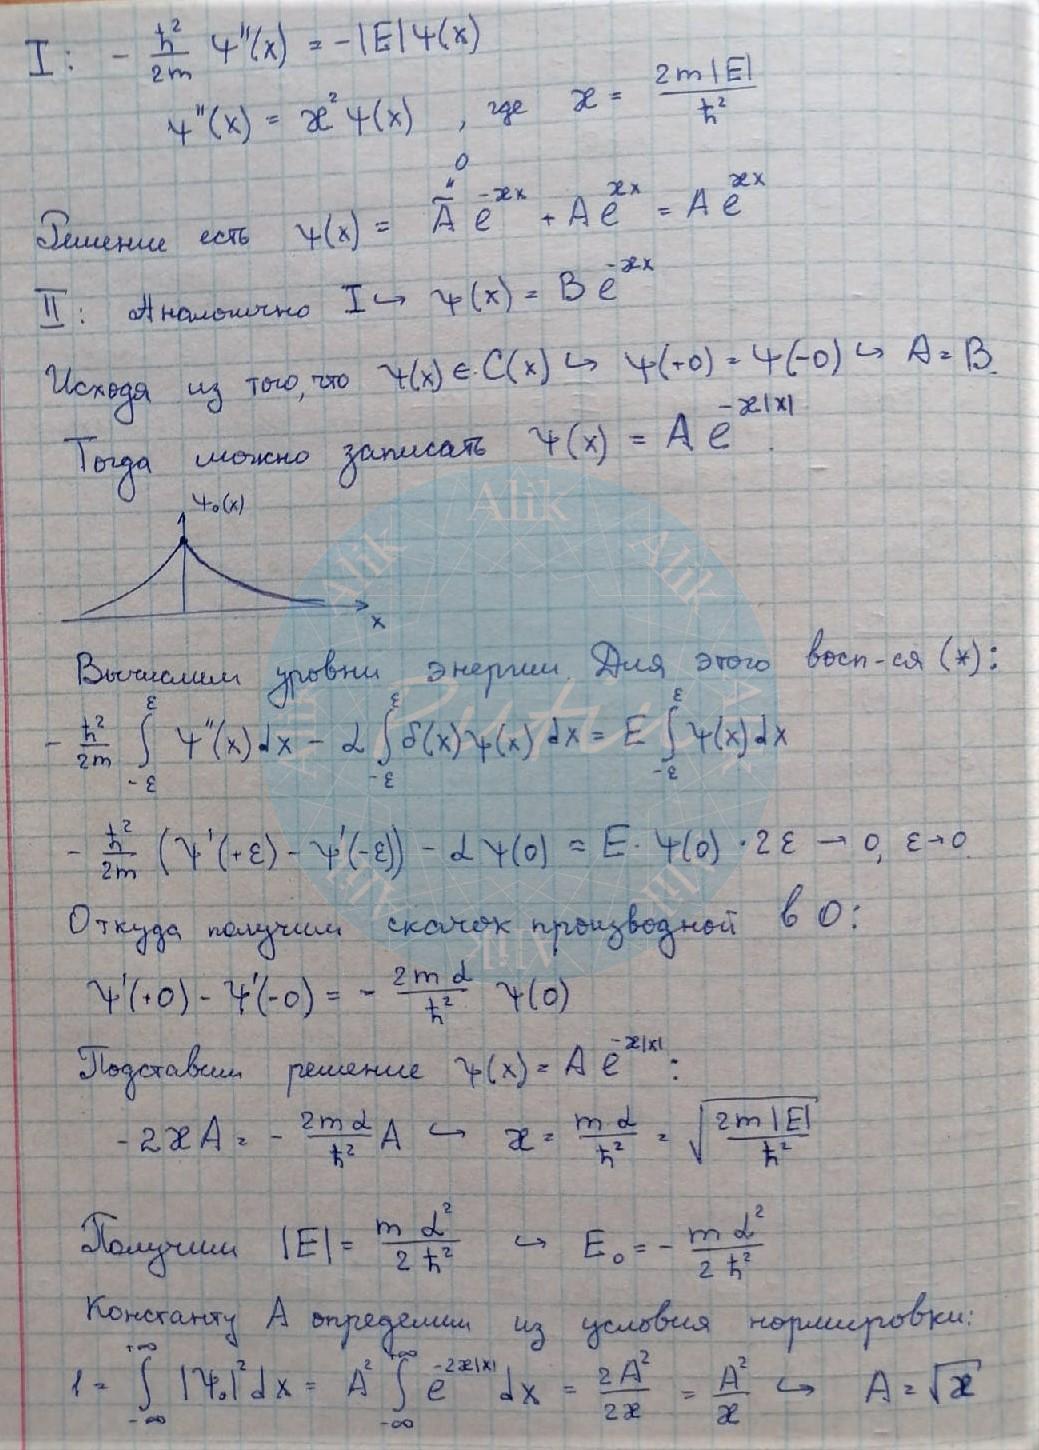 I: - ħ²/2m ψ''(x) = -|E|ψ(x)
ψ''(x) = ϰ²ψ(x), где ϰ = 2m|E|/ħ²
Решение есть ψ(x) = Ã e^{-ϰx} + A e^{ϰx} = A e^{ϰx}
0
"
II: Аналогично I ↪ ψ(x) = B e^{-ϰx}
Исходя из того, что ψ(x) ∈ C(x) ↪ ψ(+0) = ψ(-0) ↪ A = B.
Тогда можно записать ψ(x) = A e^{-ϰ|x|}.
ψ₀(x)
x
Вычислим уровни энергии. Для этого восп-ся (*):
- ħ²/2m ∫_{-ε}^{ε} ψ''(x)dx - α ∫_{-ε}^{ε} δ(x)ψ(x)dx = E ∫_{-ε}^{ε} ψ(x)dx
- ħ²/2m (ψ'(+ε) - ψ'(-ε)) - αψ(0) = E · ψ(0) · 2ε → 0, ε→0
Откуда получим скачок производной в 0:
ψ'(+0) - ψ'(-0) = - 2mα/ħ² ψ(0)
Подставим решение ψ(x) = A e^{-ϰ|x|}:
-2ϰA = - 2mα/ħ² A ↪ ϰ = mα/ħ² = √(2m|E|/ħ²)
Получим |E| = mα²/2ħ² ↪ E₀ = - mα²/2ħ²
Константу A определим из условия нормировки:
1 = ∫_{-∞}^{+∞} |ψ₀|² dx = A² ∫_{-∞}^{+∞} e^{-2ϰ|x|} dx = 2A²/2ϰ = A²/ϰ ↪ A = √ϰ
Alik
Alik
Alik
Alik
Alik
Alik
Alik
Alik